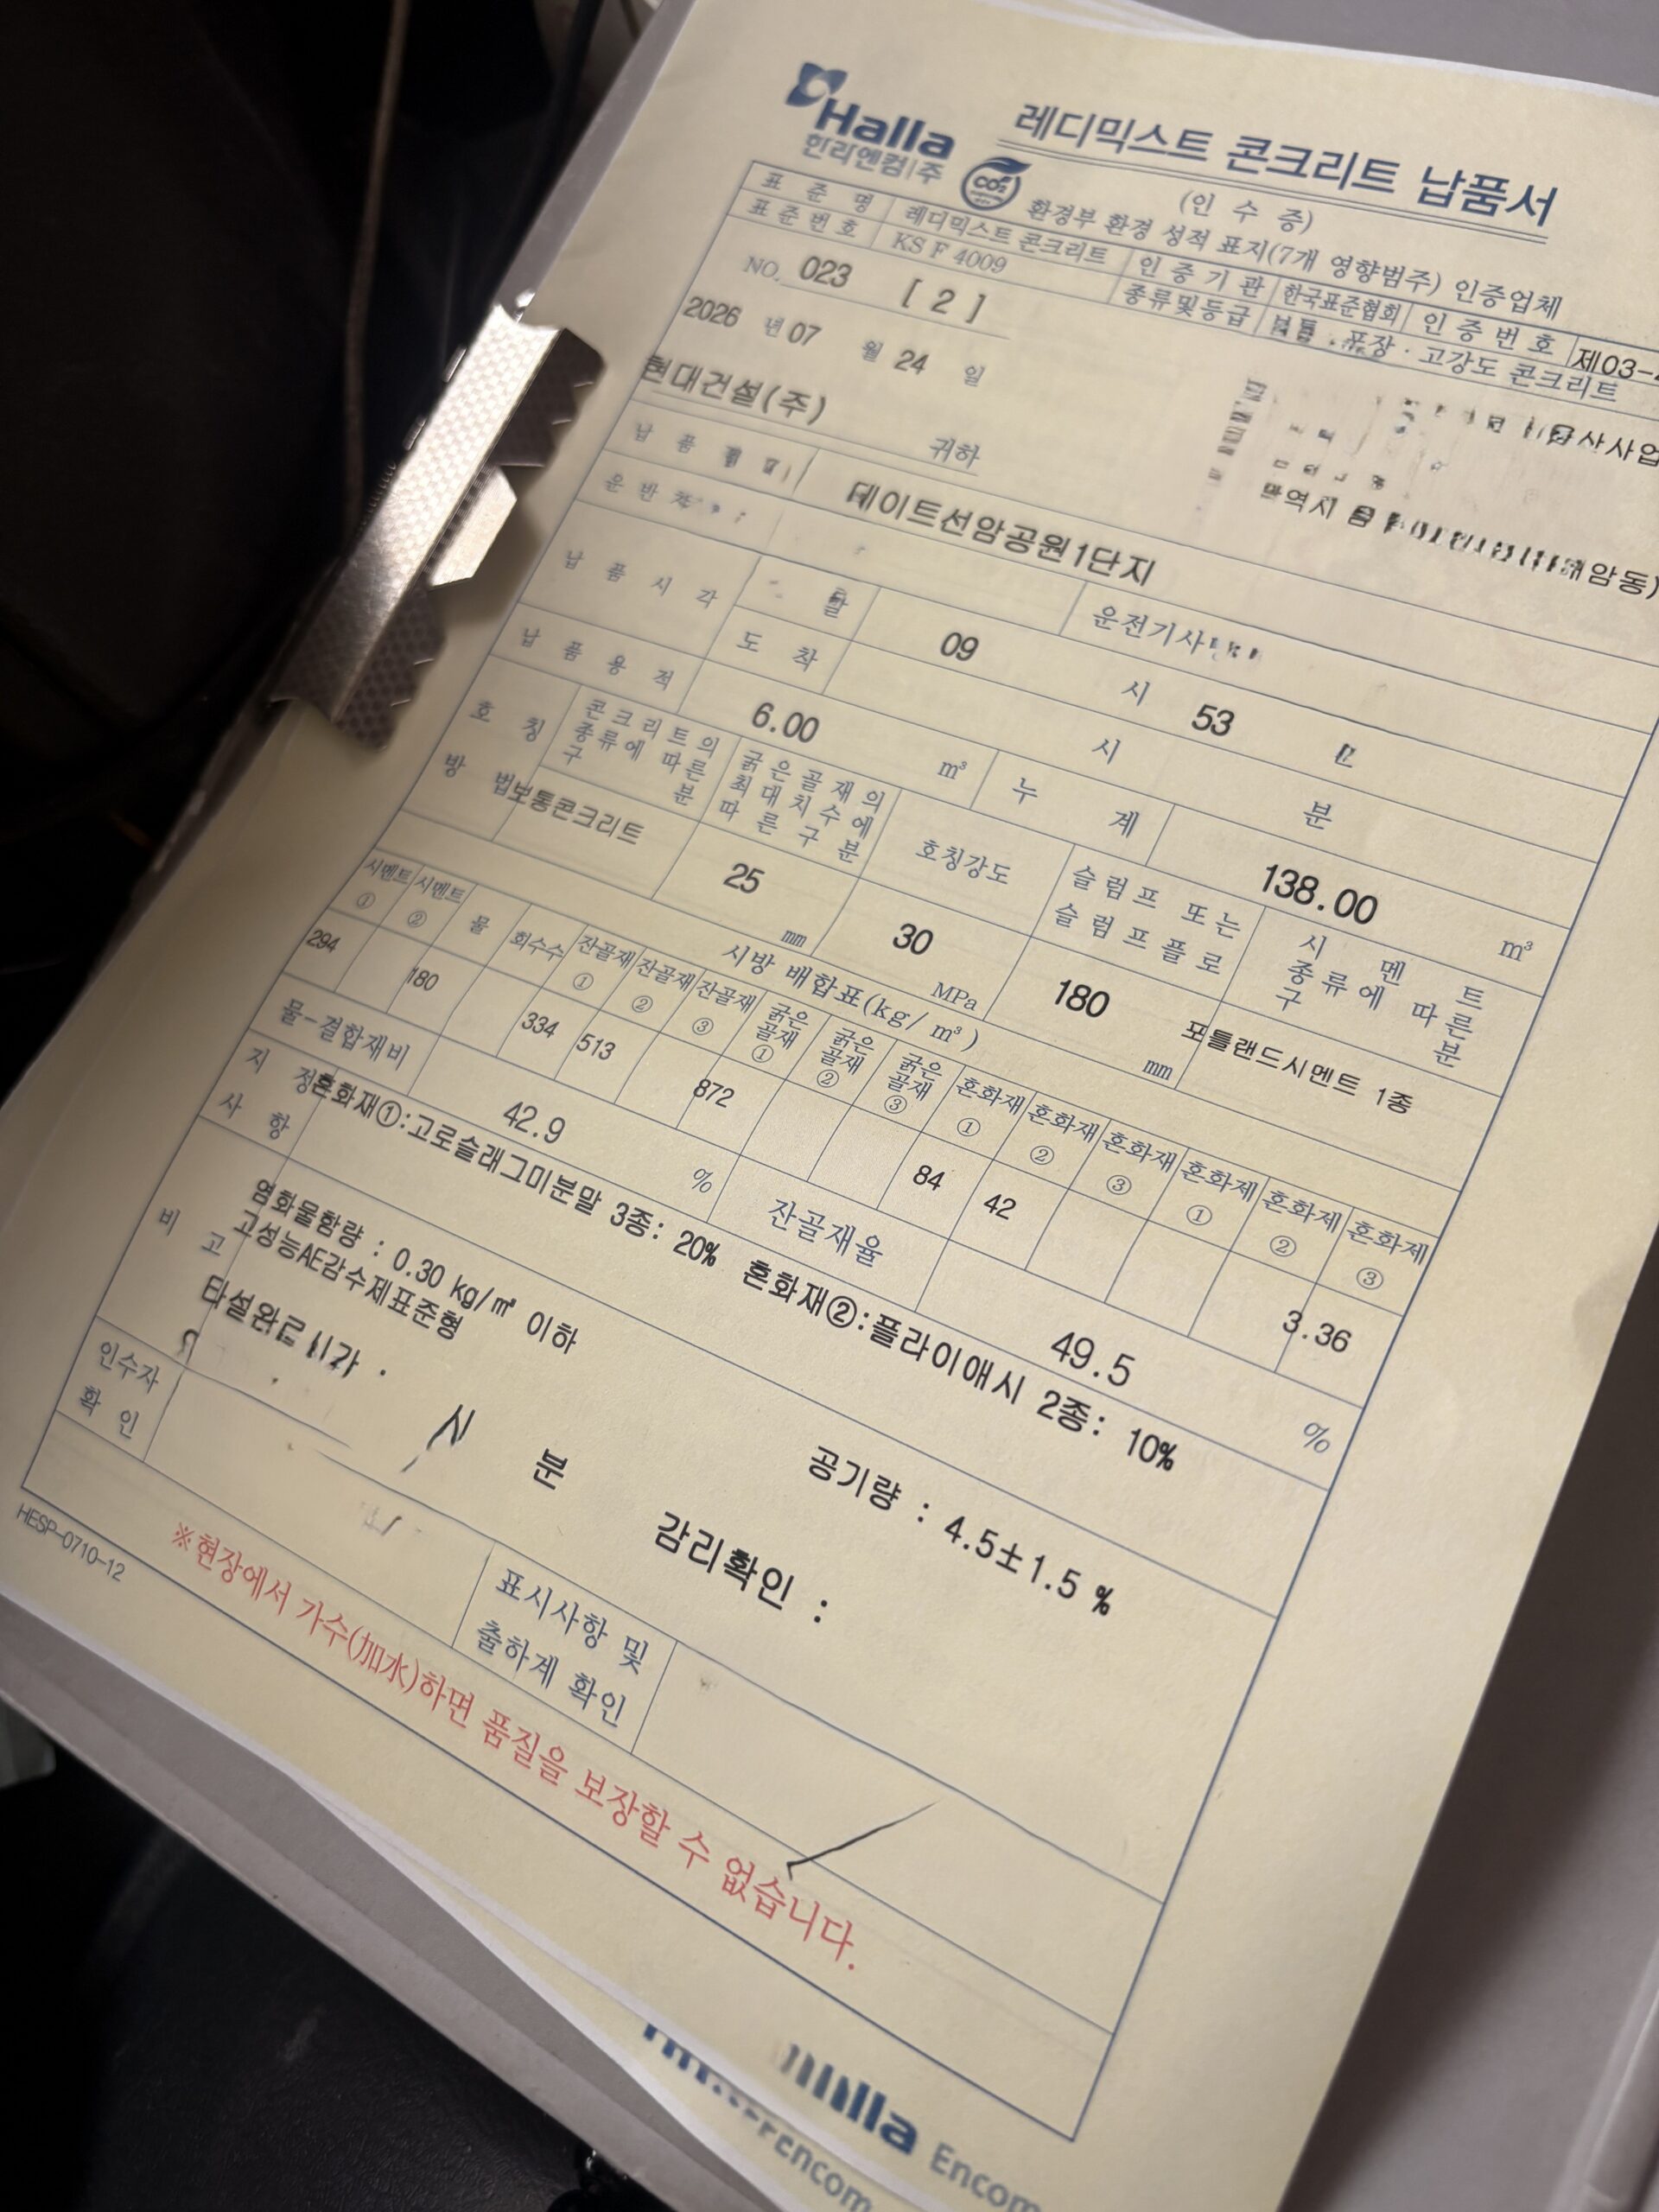 Halla
한라엔컴(주)
레디믹스트 콘크리트 납품서
(인 수 증)
CO₂
환경부 환경 성적 표지(7개 영향범주) 인증업체
표 준 명 레디믹스트 콘크리트 인 증 기 관 한국표준협회 인 증 번 호 제03-
표 준 번 호 KS F 4009 종류및등급 보통·포장·고강도 콘크리트
NO. 023 [ 2 ]
2026 년 07 월 24 일
현대건설(주) 귀하
산사업
역시
암동)
납 품
데이트선암공원1단지
운 반 차
운전기사
납 품 시 각
발 09 시 53
도 착 시 분
납 품 용 적 6.00 m³ 누 계 138.00 m³
호 칭 방 법
콘크리트의 종류에 따른 구분
굵은골재의 최대치수에 따른 구분
호칭강도
슬럼프 또는 슬럼프플로
시멘트 종류에 따른 구분
보통콘크리트 25 mm 30 MPa 180 mm 포틀랜드시멘트 1종
시방 배합표(kg/ m³)
시멘트① 시멘트② 물 회수수 잔골재① 잔골재② 잔골재③ 굵은골재① 굵은골재② 굵은골재③ 혼화재① 혼화재② 혼화재③ 혼화제① 혼화제② 혼화제③
294 180 334 513 872 84 42 3.36
물-결합재비 42.9 % 잔골재율 49.5 %
지 정 사 항
혼화재①:고로슬래그미분말 3종: 20% 혼화재②:플라이애시 2종: 10%
비 고
염화물함량 : 0.30 kg/㎥ 이하 공기량 : 4.5±1.5 %
고성능AE감수제표준형
타설완료시간
시 분 감리확인 :
인수자 확 인
표시사항 및 출하계 확인
※현장에서 가수(加水)하면 품질을 보장할 수 없습니다.
HESP-0710-12
Encom
encom